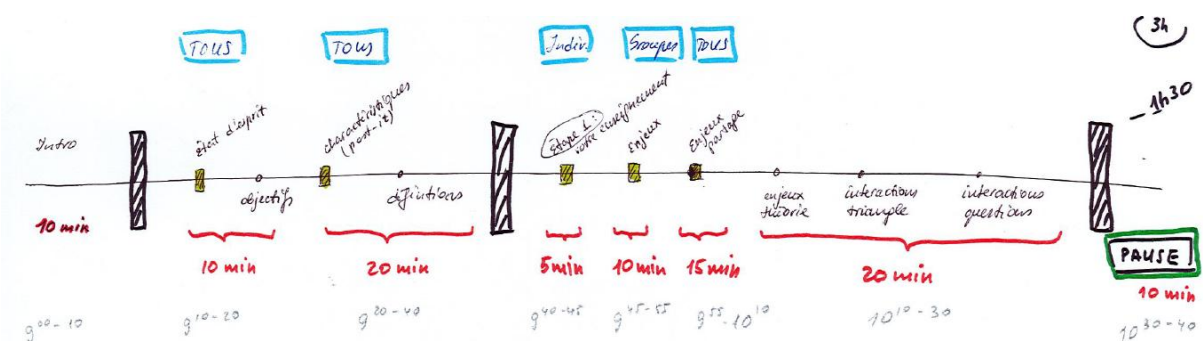 3h
TOUS
TOUS
Indiv.
Groupes
TOUS
1h30
Intro
état d'esprit
objectifs
charactéristiques
(post-it)
définitions
Étape 1:
votre enseignement
Enjeux
Enjeux
partage
enjeux
théorie
interactions
triangle
interactions
questions
PAUSE
10 min
10 min
20 min
5min
10 min
15 min
20 min
10 min
9⁰⁰-10
9¹⁰-20
9²⁰-40
9⁴⁰-45
9⁴⁵-55
9⁵⁵-10¹⁰
10¹⁰-30
10³⁰-40